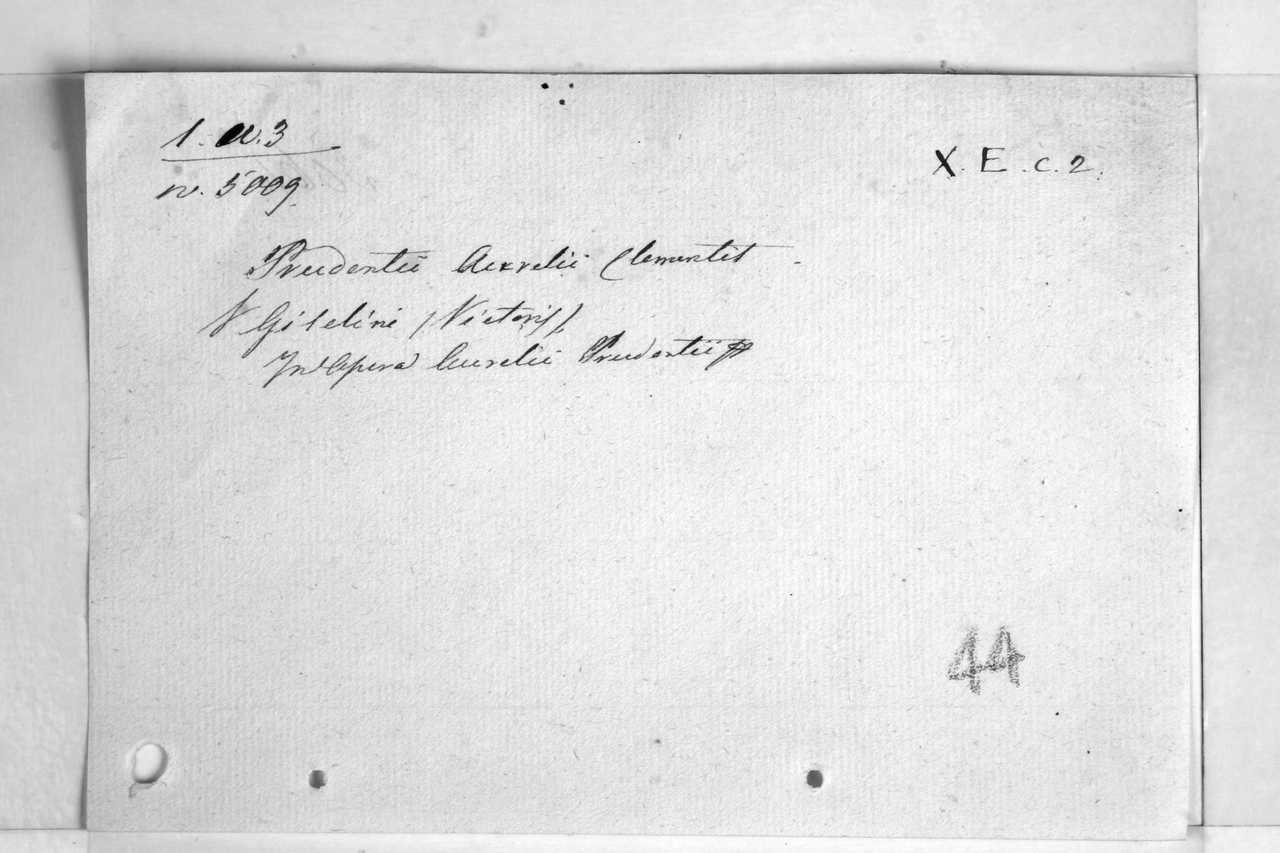 1. a. 3
X. E. c. 2.
n. 5009.
Prudentii Aurelii Clementis
V Giselini /Victoris/
In Opera Aurelii Prudentii
44